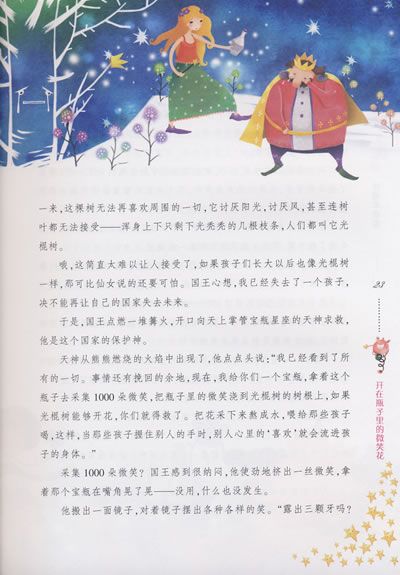 一来,这棵树无法再喜欢周围的一切,它讨厌阳光,讨厌风,甚至连树
叶都无法接受——浑身上下只剩下光秃秃的几根枝条,人们都叫它光
棍树。
哦,这简直太难以让人接受了,如果孩子们长大以后也像光棍树
一样,那可比仙女说的还要可怕。国王心想,我已经失去了一个孩子,
决不能再让自己的国家失去未来。
于是,国王点燃一堆篝火,开口向天上掌管宝瓶星座的天神求救,
他是这个国家的保护神。
天神从熊熊燃烧的火焰中出现了,他点点头说:“我已经看到了所
有的一切。事情还有挽回的余地,现在,我给你们一个宝瓶,拿着这个
瓶子去采集1000朵微笑,把瓶子里的微笑浇到光棍树的树根上,如果
光棍树能够开花,你们就得救了。把花采下来熬成水,喂给那些孩子
喝,这样,当那些孩子握住别人的手时,别人心里的‘喜欢’就会流进孩
子的身体。”
采集1000朵微笑?国王感到很纳闷,他使劲地挤出一丝微笑,拿
着那个宝瓶在嘴角晃了晃——没用,什么也没发生。
他搬出一面镜子,对着镜子摆出各种各样的笑。“露出三颗牙吗?
23
开在瓶子里的微笑花